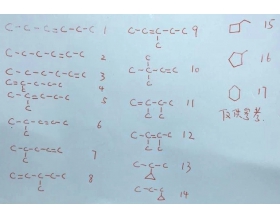 C-C-C-C=C-C 1
C-C-C-C=C-C 2
C-C-C-C-C=C 3
C=C-C-C-C 4
C
C-C=C-C-C 5
C
C-C-C=C-C 6
C
C-C-C-C=C 7
C
C=C-C-C-C 8
C
C-C=C-C-C 9
C
C
C-C-C=C 10
C
C-C-C=C 11
C C
C-C=C-C 12
C C
C-C-C 13
C-C-C 14
C
15
16
17
仅供参考.